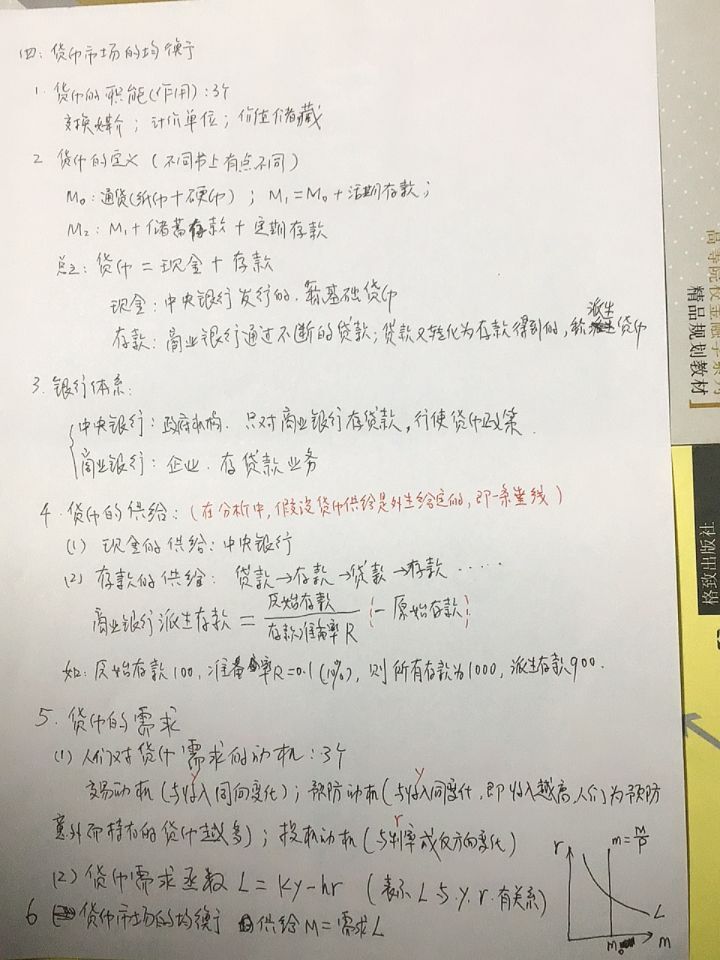 四:货币市场的均衡
1. 货币的职能(作用):3个
交换媒介;计价单位;价值储藏
2 货币的定义(不同书上有点不同)
M₀:通货(纸币+硬币);M₁=M₀+活期存款;
M₂:M₁+储蓄存款+定期存款
总之:货币=现金+存款
现金:中央银行发行的.称基础货币
存款:商业银行通过不断的贷款;贷款又转化为存款得到的,称派生货币
3.银行体系:
中央银行:政府机构.只对商业银行存贷款,行使货币政策.
商业银行:企业.存贷款业务
4.货币的供给:(在分析中,假设货币供给是外生给定的,即一条垂线)
(1)现金的供给:中央银行
(2)存款的供给:贷款→存款→贷款→存款……
商业银行派生存款=原始存款/存款准备率R(-原始存款)
如:原始存款100,准备率R=0.1(10%),则所有存款为1000,派生存款900.
5.货币的需求
(1)人们对货币需求的动机:3个
y y
交易动机(与收入同向变化);预防动机(与收入同变化,即收入越高,人们为预防
r
意外而持有的货币越多);投机动机(与利率成反方向变化)
(2)货币需求函数L=ky-hr (表示L与.y.r.有关系)
6 货币市场的均衡 供给M=需求L
r m=M/P
L
m₀ m
高等院校金融学系列
精品规划教材
格致出版社